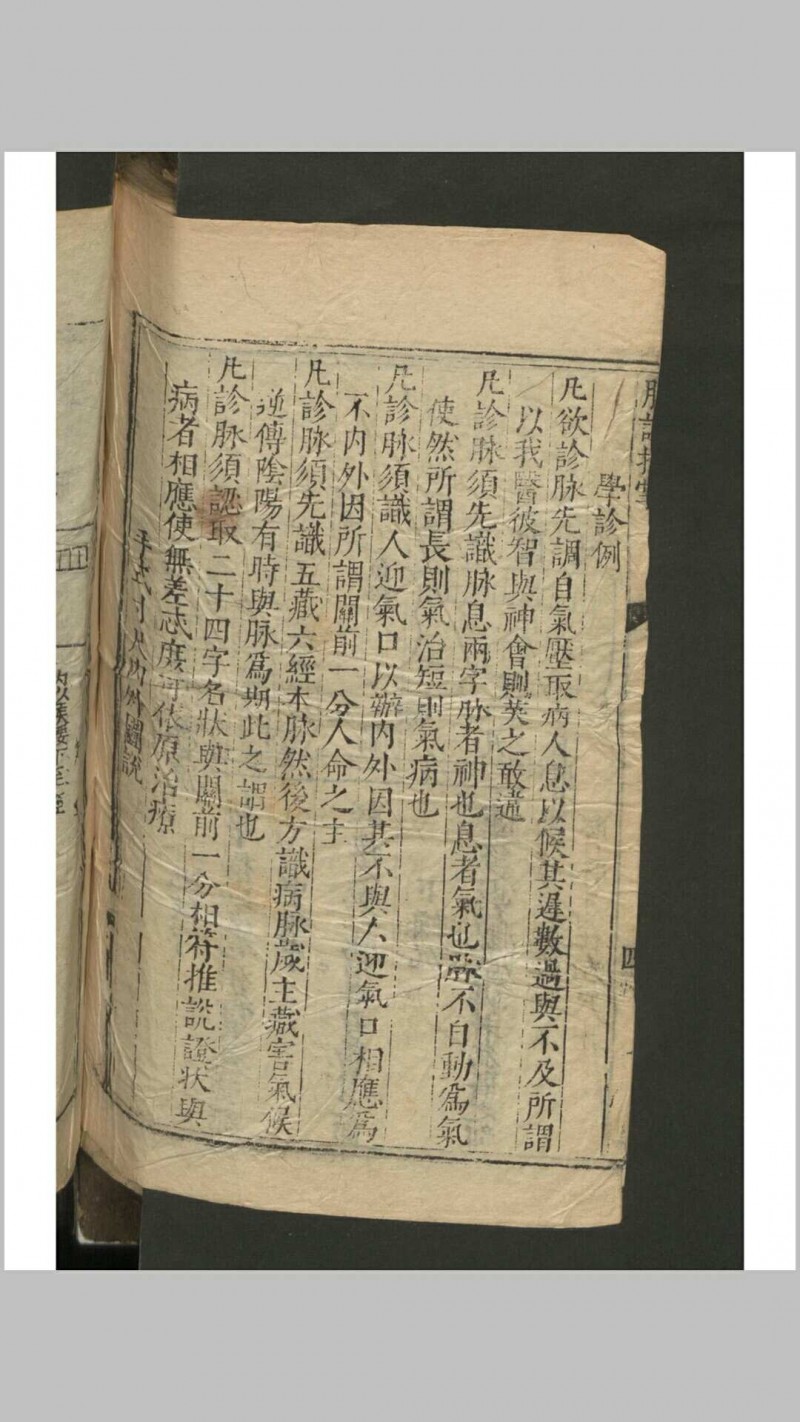 學診例
凡欲診脉先調自氣壓取病人息以候其遲數過與不及所謂
以我醫彼智與神會則莫之敢違
凡診脉須先識脉息兩字脉者神也息者氣也脉不自動為氣
使然所謂長則氣治短則氣病也
凡診脉須識人迎氣口以辦内外因其不與人迎氣口相應為
不内外因所謂關前一分人命之主
凡診脉須先識五藏六經本脉然後方識病脉歲主藏害氣候
逆傳陰陽有時與脉為期此之謂也
凡診脉須認取二十四字名狀與關前一分相符推說證狀與
病者相應使無差忒庶可依原治療
内外圖說